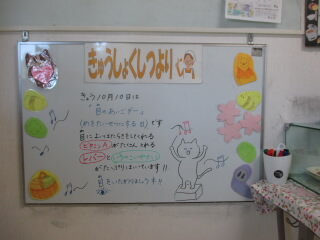 きゅうしょくしつより
きょう10月10日は
"目のあいごデー"
(めをたいせつにする日)です
目によいはたらきをしてくれる
ビタミンAがたくさんとれる
レバーと
がたっぷりはいっています!!
目をいたわりましょうネ!!